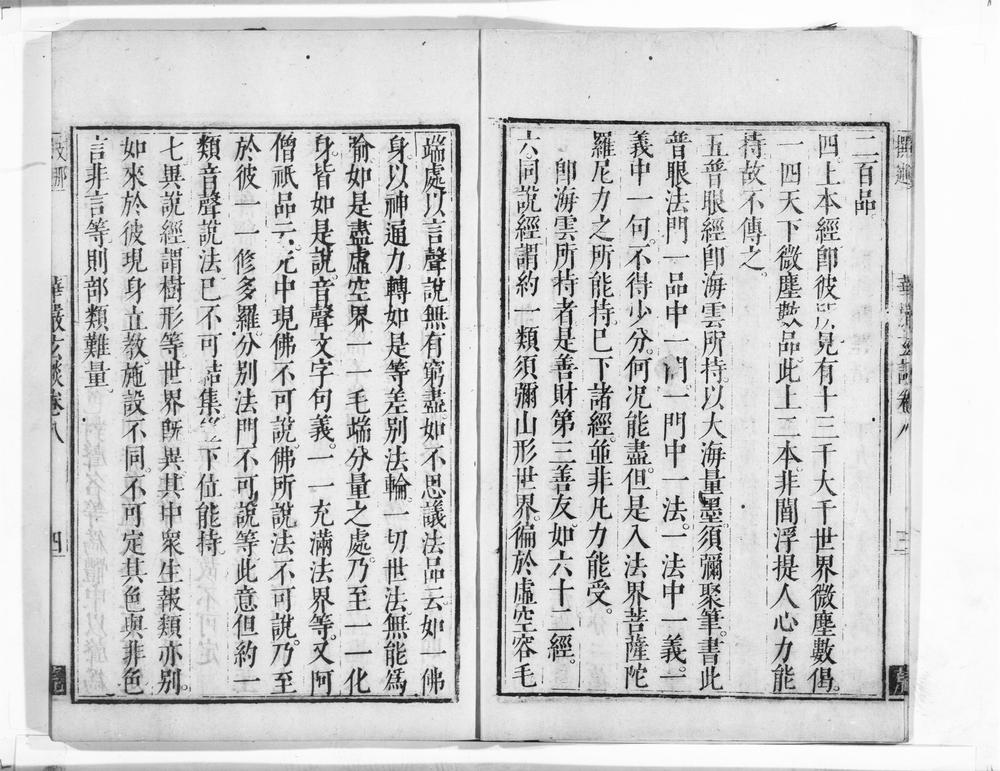 二百品
四上本經即彼所見有十三千大千世界微塵數偈。
一四天下微塵數品。此上二本。非閻浮提人。心力能
持。故不傳之。
五普眼經。即海雲所持。以大海量墨。須彌聚筆。書此
普眼法門。一品中一門。一門中一法。一法中一義。一
義中一句。不得少分。何況能盡。但是入法界菩薩陀
羅尼力之所能持。已下諸經。並非凡力能受。
即海雲所持者。是善財第三善友。如六十二經。
六。同說經。謂約一類須彌山形世界。徧於虛空容毛
端處。以言聲說無有窮盡。如不思議法品云。如一佛
身。以神通力。轉如是等差別法輪。一切世法。無能為
喻。如是盡虛空界。一一毛端分量之處。乃至一一化
身。皆如是說。音聲文字句義。一一充滿法界等。又阿
僧祇品云。中現佛不可說。佛所說法不可說。乃至
於彼一一修多羅。分別法門不可說等。此意但約一
類音聲說法。已不可結集。下位能持
七異說經。謂樹形等世界既異。其中眾生報類亦別。
如來於彼現身立教。施設不同。不可定其色與非色
言非言等。則部類難量。
華嚴玄談卷八
四